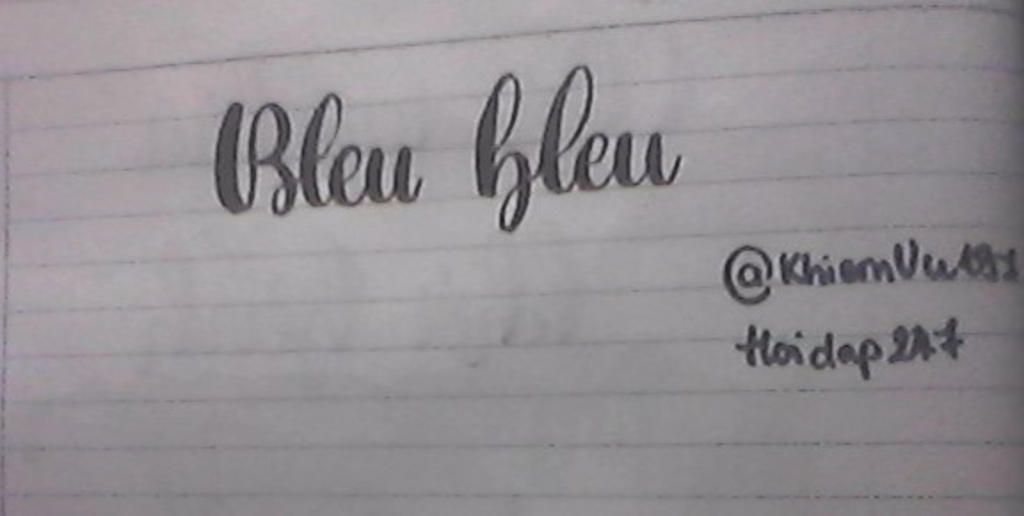 Bleu bleu
@KhiemVu191
Hoidap247